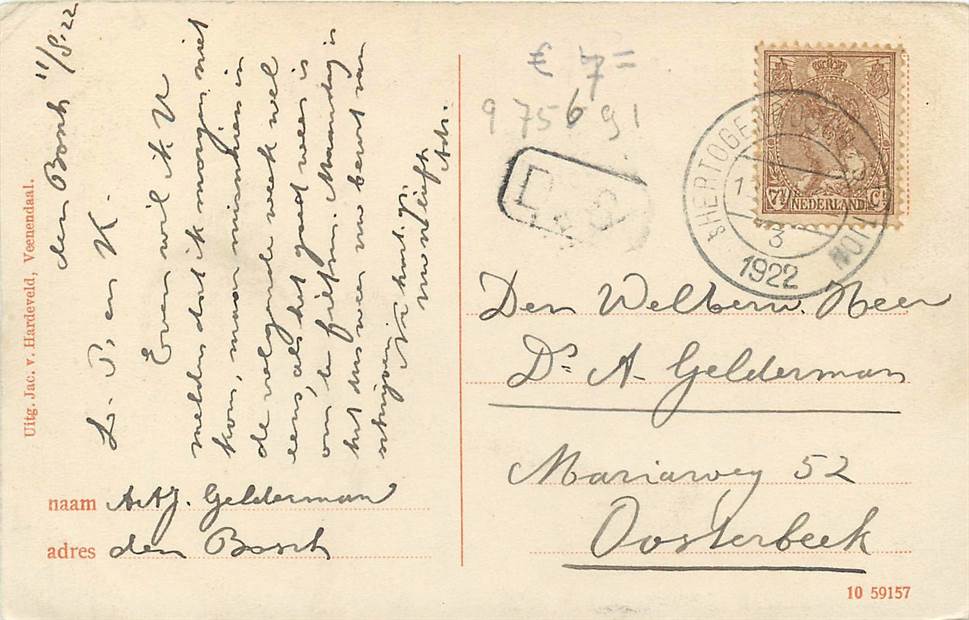 den Bosch 11/8.22
L. P. en K.
Even wil ik U
melden dat ik morgen niet
kom, maar misschien in
de volgende week wel
eens, als het goed weer is
om te fietsen. Maandag is
het dus weer uw beurt van
schrijven. Na hart. gr.
uw liefh.
Adr.
Uitg. Jac. v. Hardeveld, Veenendaal.
naam A.A.J. Gelderman
adres den Bosch
€ 7=
975691
D 3
'S HERTOGENBOSCH
3
1922
7½ Ct
NEDERLAND
Den Weleerw. Heer
Ds. A. Gelderman
Mariaweg 52
Oosterbeek
10 59157